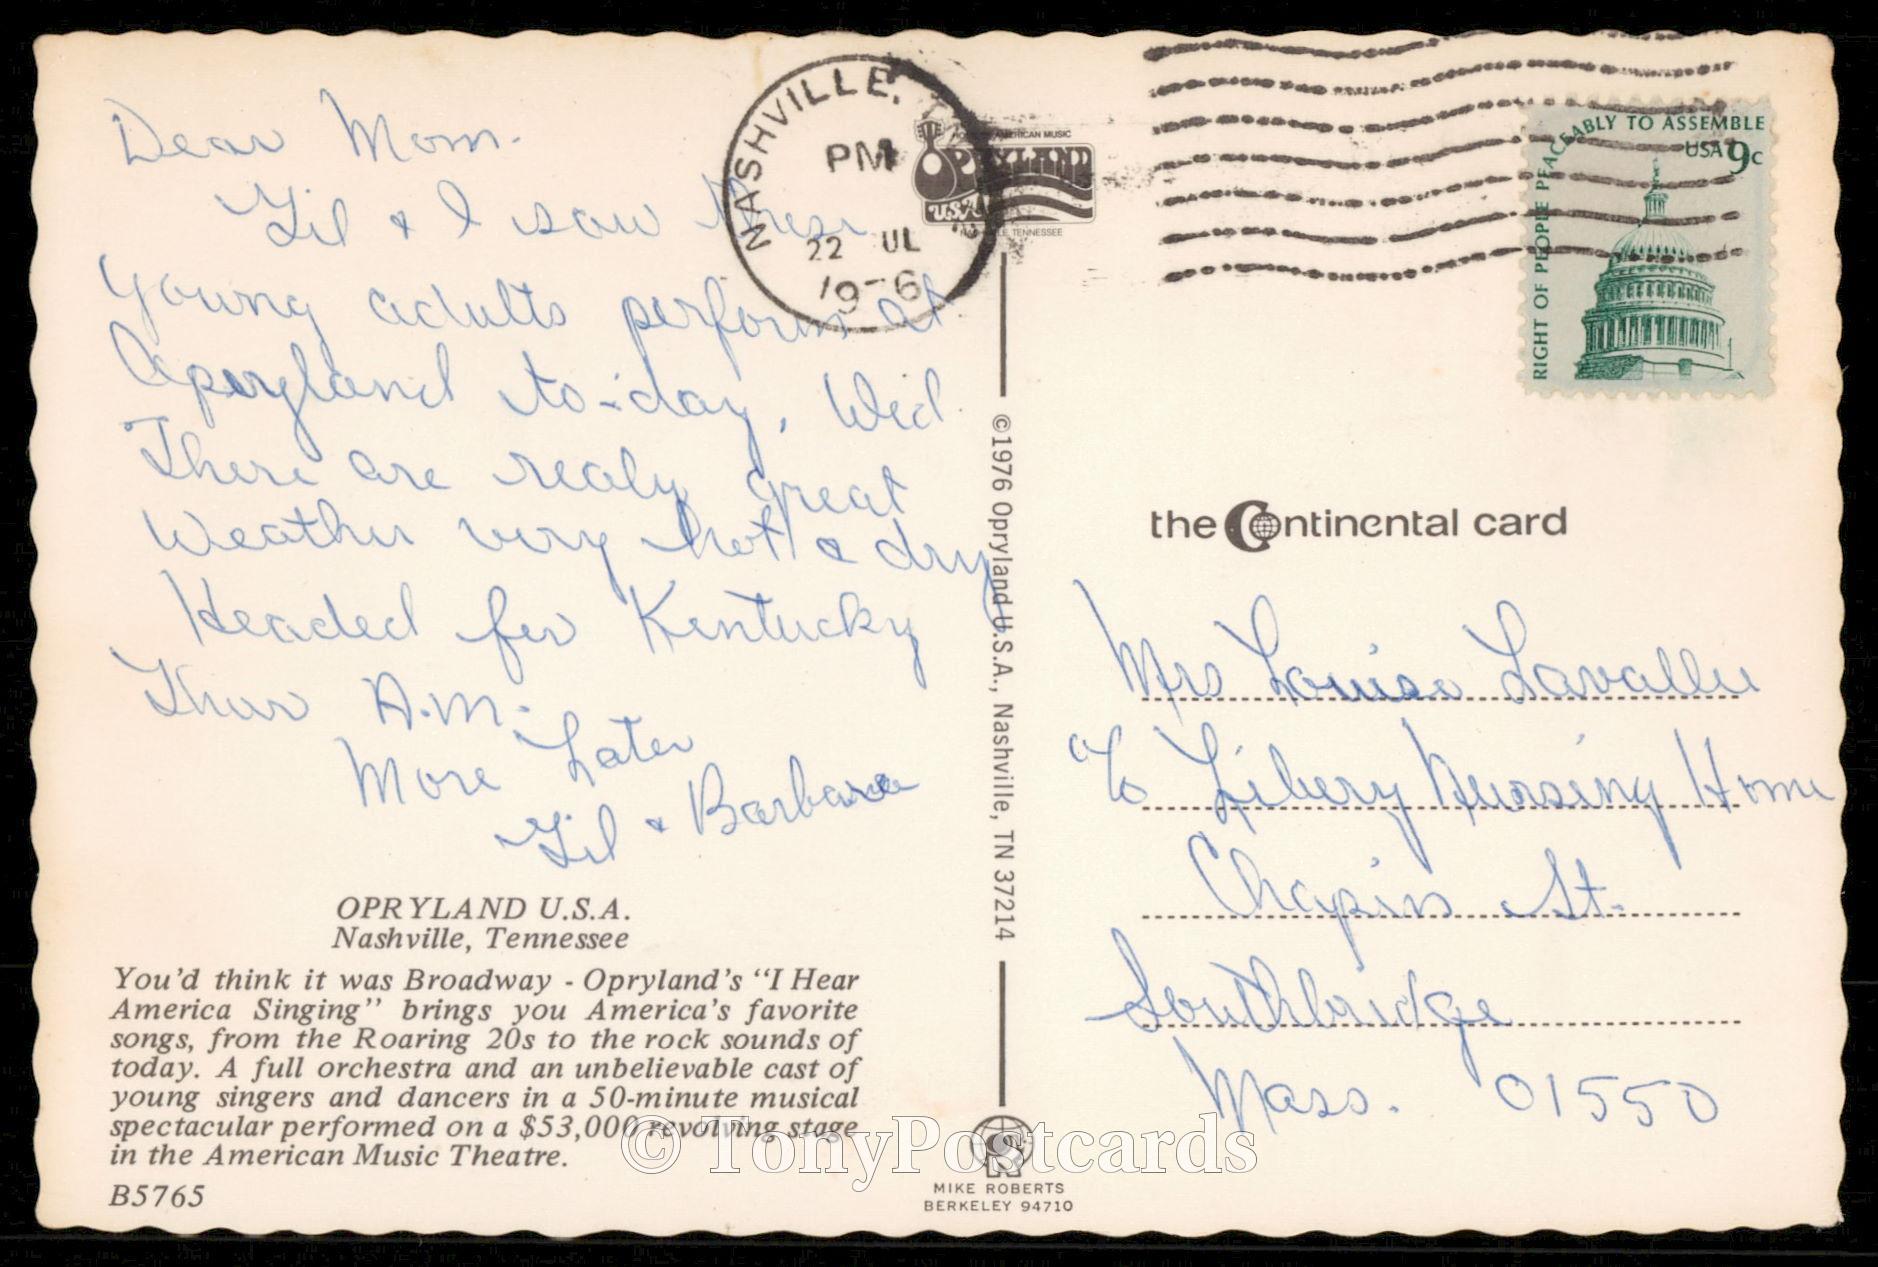 Dear Mom.
Gil & I saw these
Young adults perform at
Opryland to-day, Wed.
There are realy great
Weather very hot & dry
Headed for Kentucky
Thur A.M.
More Later
Gil & Barbara
OPRYLAND U.S.A.
Nashville, Tennessee
You'd think it was Broadway - Opryland's "I Hear
America Singing" brings you America's favorite
songs, from the Roaring 20s to the rock sounds of
today. A full orchestra and an unbelievable cast of
young singers and dancers in a 50-minute musical
spectacular performed on a $53,000 revolving stage
in the American Music Theatre.
B5765
NASHVILLE,
PM
22 UL
AMERICAN MUSIC
OPRYLAND
U.S.A.
TENNESSEE
©1976 Opryland U.S.A., Nashville, TN 37214
MIKE ROBERTS
BERKELEY 94710
RIGHT OF PEOPLE PEACEABLY TO ASSEMBLE
USA 9c
the Continental card
Mrs Louise Lavallee
c/o Libery Nursing Home
Chapin St.
Southbridge
Mass. 01550
© TonyPostcards